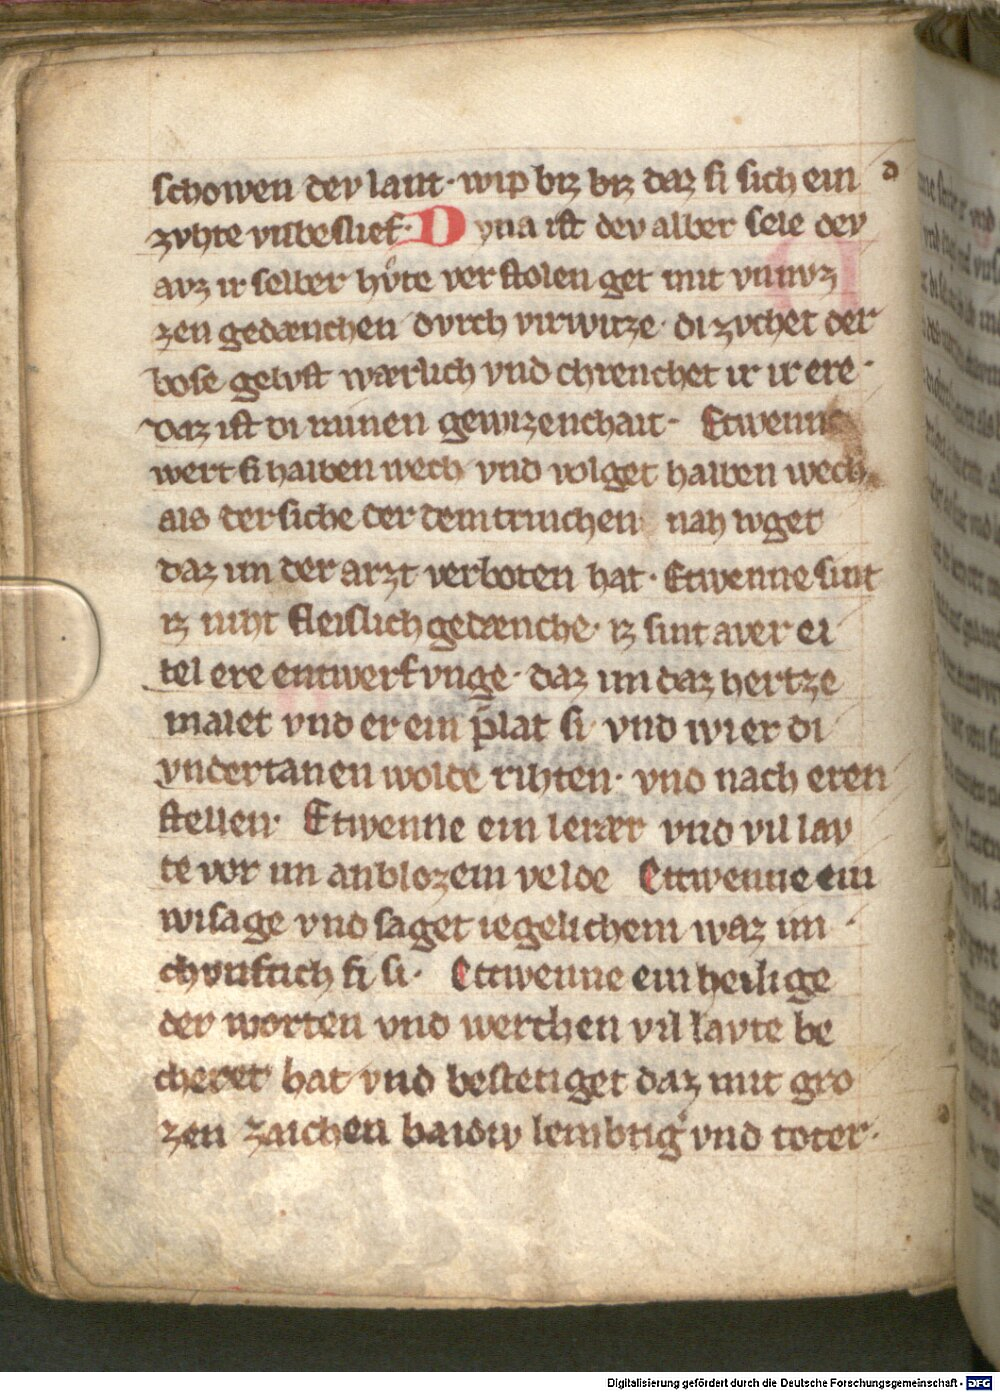 schowen dev lant· wip biz biz daz si sich ein d
zvhte vnbeslief· Dyna ist dev alber sele dev
avz ir selber hvͦte verstolen get mit vnnvz
zen gedænchen dvrch virwitze· di zvchet der
bose gelvst wærlich vnd chrenchet ir ir ere·
daz ist di innen gewizenchait· Etwenne
wert si halben wech vnd volget halben wech
als der siche der dem trinchen nah volget
daz im der arzt verboten hat· Etwenne sint
iz niht fleislich gedænche· iz sint aver ei
tel ere entwerfvnge· daz im daz hertze
malet vnd er ein p̄lat si· vnd wier di
vndertanen wolde rihten· vnd nach eren
stellen· Etwenne ein lerær vnd vil lav
te vor im an blozem velde Ettwenne ein
wisage vnd saget iegelichem waz im
chvnftich si si· Ettwenne ein heilige
der worten vnd werchen vil lavte be
cheret hat vnd bestetiget daz mit gro
zen zaichen baidiv lembtig̾ vnd toter·
Digitalisierung gefördert durch die Deutsche Forschungsgemeinschaft - DFG